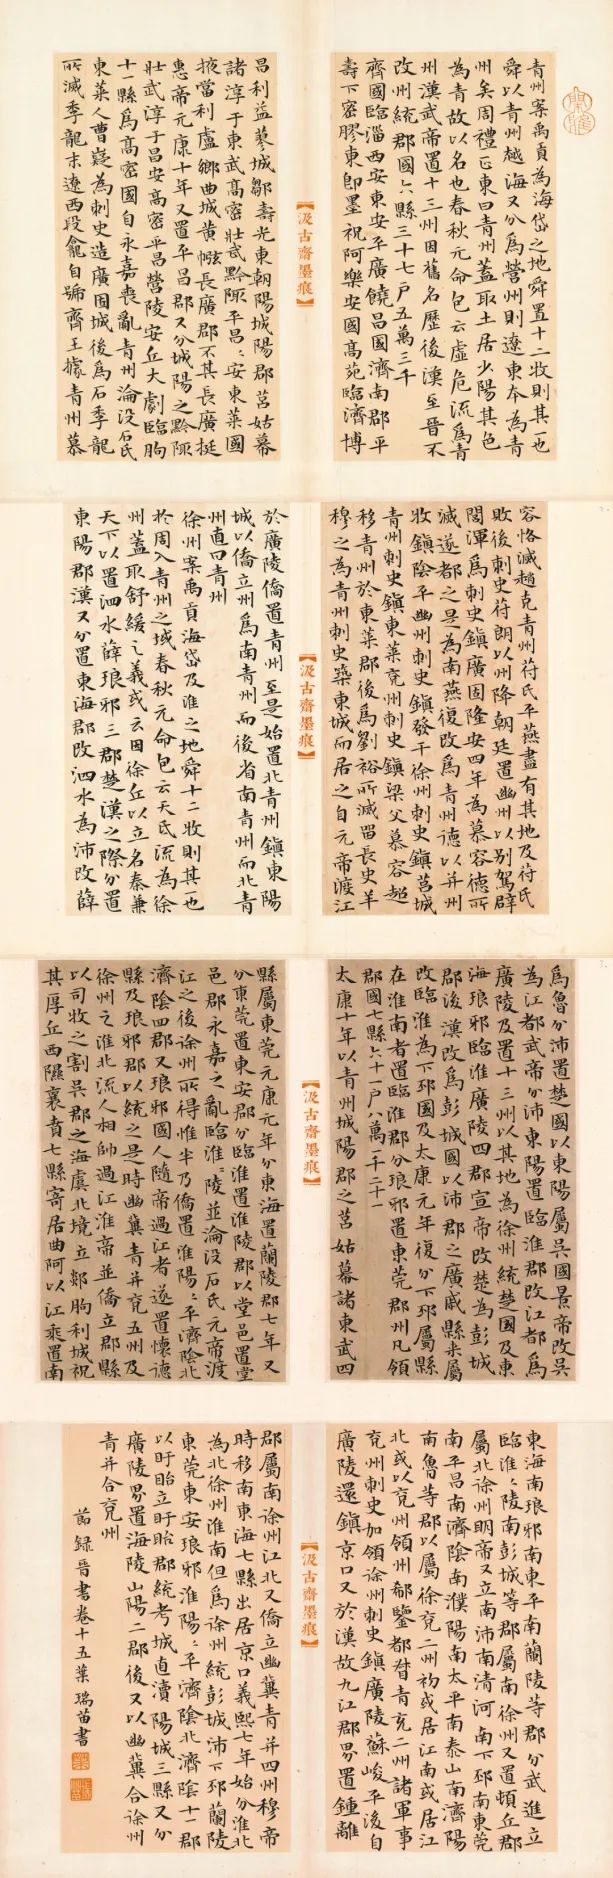 青州案禹貢為海岱之地舜置十二牧則其一也
舜以青州越海又分爲營州則遼東本為青
州矣周禮正東曰青州蓋取土居少陽其色
為青故以名也春秋元命包云虛危流爲青
州漢武帝置十三州因舊名歷後漢至晉不
改州統郡國六縣三十七户五萬三千
齊國臨淄西安東安平廣饒昌國濟南郡平
壽下密膠東即墨祝阿樂安國高苑臨濟博
【汲古齋墨痕】
昌利益蓼城鄒壽光東朝陽城陽郡莒姑幕
諸淳于東武高密壯武黔陬平昌〻安東萊國
掖當利盧鄉曲城黄惤長廣郡不其長廣挺
惠帝元康十年又置平昌郡又分城陽之黔陬
壯武淳于昌安高密平昌營陵安丘大劇臨朐
十一縣爲高密國自永嘉喪亂青州淪没石氏
東萊人曹嶷為刺史造廣固城後爲石季龍
所滅季龍末遼西段龕自號齊王據青州慕
容恪滅趙克青州苻氏平燕盡有其地及苻氏
敗後刺史苻朗以州降朝廷置幽州以别駕辟
閭渾爲刺史鎮廣固隆安四年為慕容德所
滅遂都之是為南燕復改爲青州德以并州
牧鎮陰平幽州刺史鎮發干徐州刺史鎮莒城
青州刺史鎮東萊兖州刺史鎮梁父慕容超
移青州於東萊郡後爲劉裕所滅留長史羊
穆之為青州刺史築東城而居之自元帝渡江
【汲古齋墨痕】
於廣陵僑置青州至是始置北青州鎮東陽
城以僑立州爲南青州而後省南青州而北青
州直曰青州
徐州案禹貢海岱及淮之地舜十二牧則其一也
於周入青州之域春秋元命包云天氐流為徐
州蓋取舒緩之義或云因徐丘以立名秦兼
天下以置泗水薛琅邪三郡楚漢之際分置
東陽郡漢又分置東海郡改泗水為沛改薛
爲魯分沛置楚國以東陽屬吳國景帝改吳
為江都武帝分沛東陽置臨淮郡改江都爲
廣陵及置十三州以其地為徐州統楚國及東
海琅邪臨淮廣陵四郡宣帝改楚為彭城
郡後漢改爲彭城國以沛郡之廣戚縣來屬
改臨淮為下邳國及太康元年復分下邳屬縣
在淮南者置臨淮郡分琅邪置東莞郡州凡領
郡國七縣六十一户八萬一千二十一
太康十年以青州城陽郡之莒姑幕諸東武四
【汲古齋墨痕】
縣屬東莞元康元年分東海置蘭陵郡七年又
分東莞置東安郡分臨淮置淮陵郡以堂邑置堂
邑郡永嘉之亂臨淮〻陵並淪没石氏元帝渡
江之後徐州所得惟半乃僑置淮陽〻平濟陰北
濟陰四郡又琅邪國人隨帝過江者遂置懷德
縣及琅邪郡以統之是時幽冀青并兖五州及
徐州之淮北流人相帥過江淮帝並僑立郡縣
以司牧之割吳郡之海虞北境立郯朐利城祝
其厚丘西隰襄賁七縣寄居曲阿以江乘置南
東海南琅邪南東平南蘭陵等郡分武進立
臨淮〻陵南彭城等郡屬南徐州又置頓丘郡
屬北徐州明帝又立南沛南清河南下邳南東莞
南平昌南濟陰南濮陽南太平南泰山南濟陽
南魯等郡以屬徐兖二州初或居江南或居江
北或以兖州領州郗鑒都督青兖二州諸軍事
兖州刺史加領徐州刺史鎮廣陵蘇峻平後自
廣陵還鎮京口又於漢故九江郡界置鍾離
【汲古齋墨痕】
郡屬南徐州江北又僑立幽冀青并四州穆帝
時移南東海七縣出居京口義熙七年始分淮北
為北徐州淮南但爲徐州統彭城沛下邳蘭陵
東莞東安琅邪淮陽〻平濟陰北濟陰十一郡
以盱眙立盱眙郡統考城直瀆陽城三縣又分
廣陵界置海陵山陽二郡後又以幽冀合徐州
青并合兖州
節録晉書卷十五葉瑞苗書